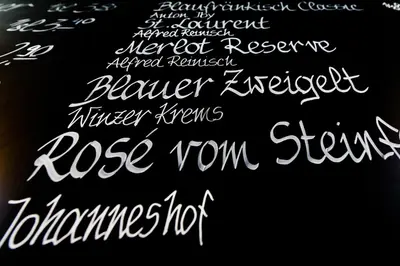 Blaufränkisch Classic
Anton Iby
St. Laurent
Alfred Reinisch
Merlot Reserve
2,90
Alfred Reinisch
Blauer Zweigelt
Winzer Krems
Rosé vom Steinf
Johanneshof